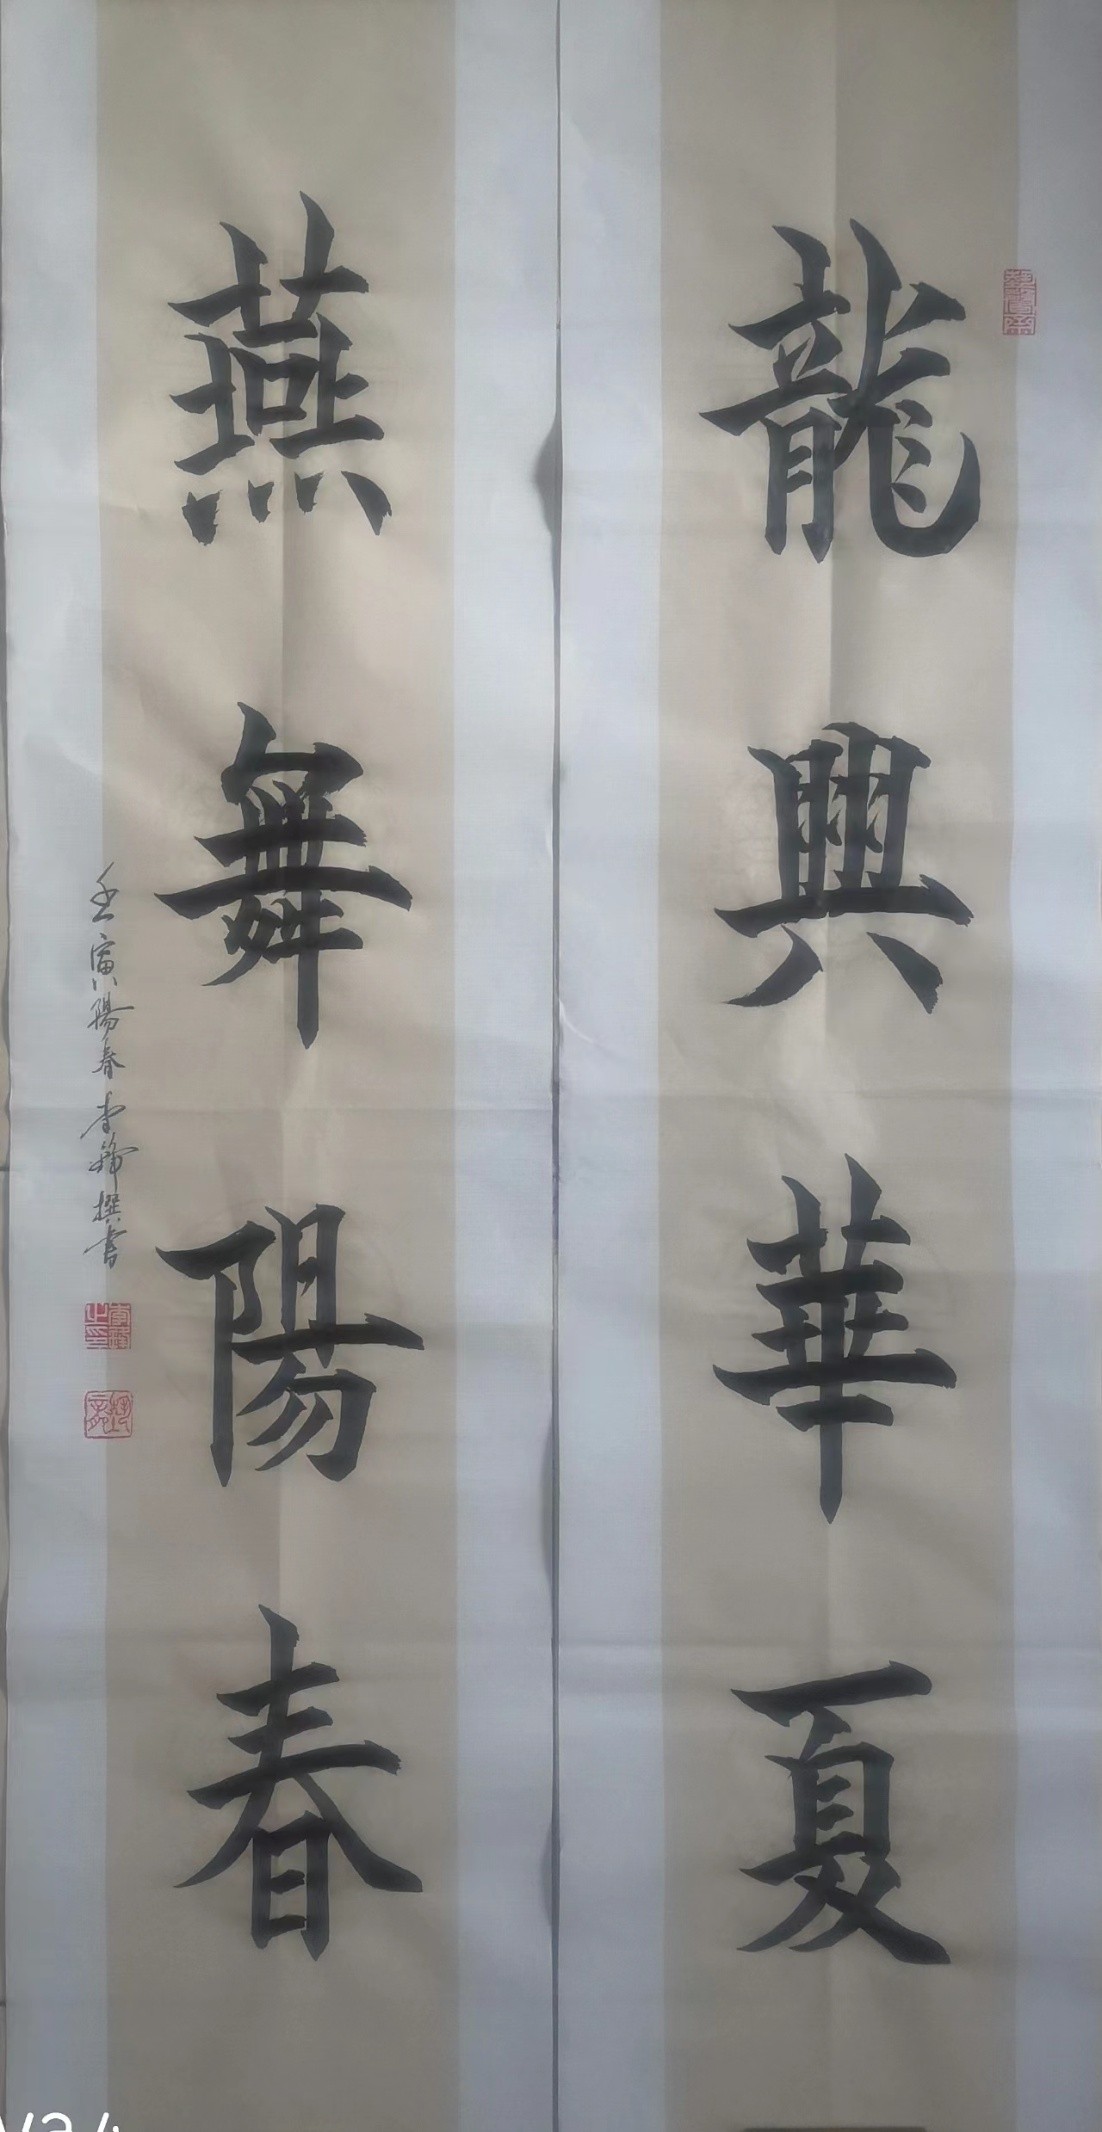 龍興華夏
燕舞陽春
壬寅陽春李鋒撰書